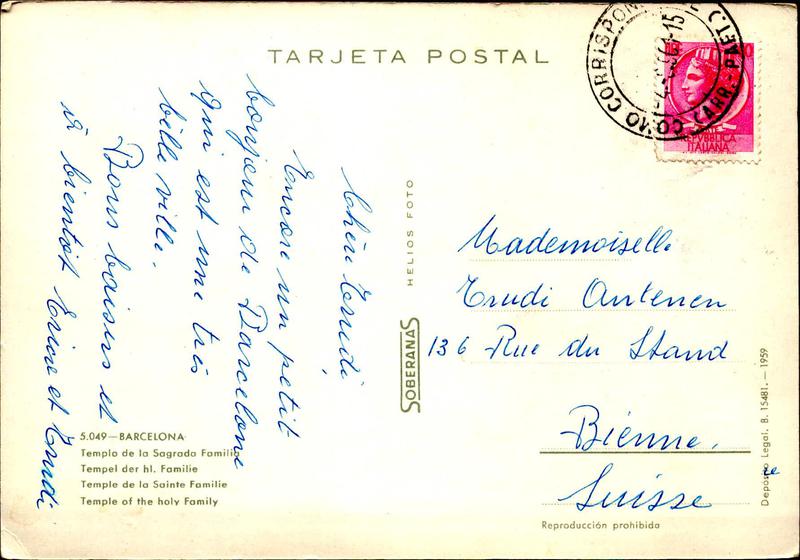 TARJETA POSTAL
Chère Trudi,
Encore un petit
bonjour de Barcelone
qui est une très
belle ville.
Bons baisers et
à bientôt Erica et Trudi
5.049—BARCELONA
Templo de la Sagrada Familia
Tempel der hl. Familie
Temple de la Sainte Familie
Temple of the holy Family
SOBERANAS
HELIOS FOTO
COMO CORRISPON
CARR.-PAET.
REPVBBLICA
ITALIANA
Mademoiselle
Trudi Antenen
136 Rue du Stand
Bienne.
Suisse
Reproducción prohibida
Depósito Legal. B. 15481.—1959